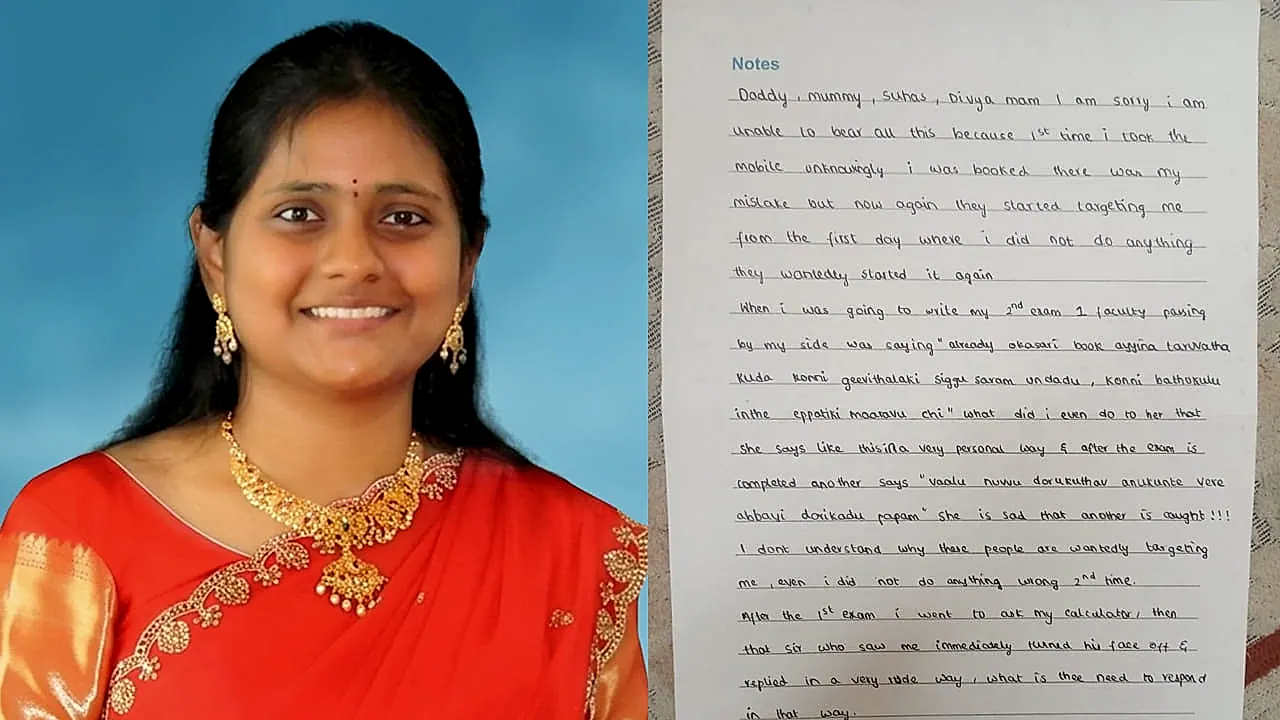 Notes
Daddy, mummy, suhas, Divya mam I am sorry i am
unable to bear all this because 1st time i took the
mobile unknowingly i was booked there was my
mistake but now again they started targeting me
from the first day where i did not do anything
they wantedly started it again
When i was going to write my 2nd exam 1 faculty passing
by my side was saying "already okasari book ayyina taruvatha
kuda konni geevithalaki siggu saram undadu, konni bathukulu
inthe eppatiki maaravu chi" what did i even do to her that
she says like this in a very personal way & after the exam is
completed another says "vaalu nuvvu dorukuthav anukunte vere
abbayi dorikadu papam" she is sad that another is caught!!!
I dont understand why these people are wantedly targeting
me, even i did not do anything wrong 2nd time.
After the 1st exam i went to ask my calculator, then
that sir who saw me immediately turned his face off &
replied in a very rude way, what is thee need to respond
in that way.